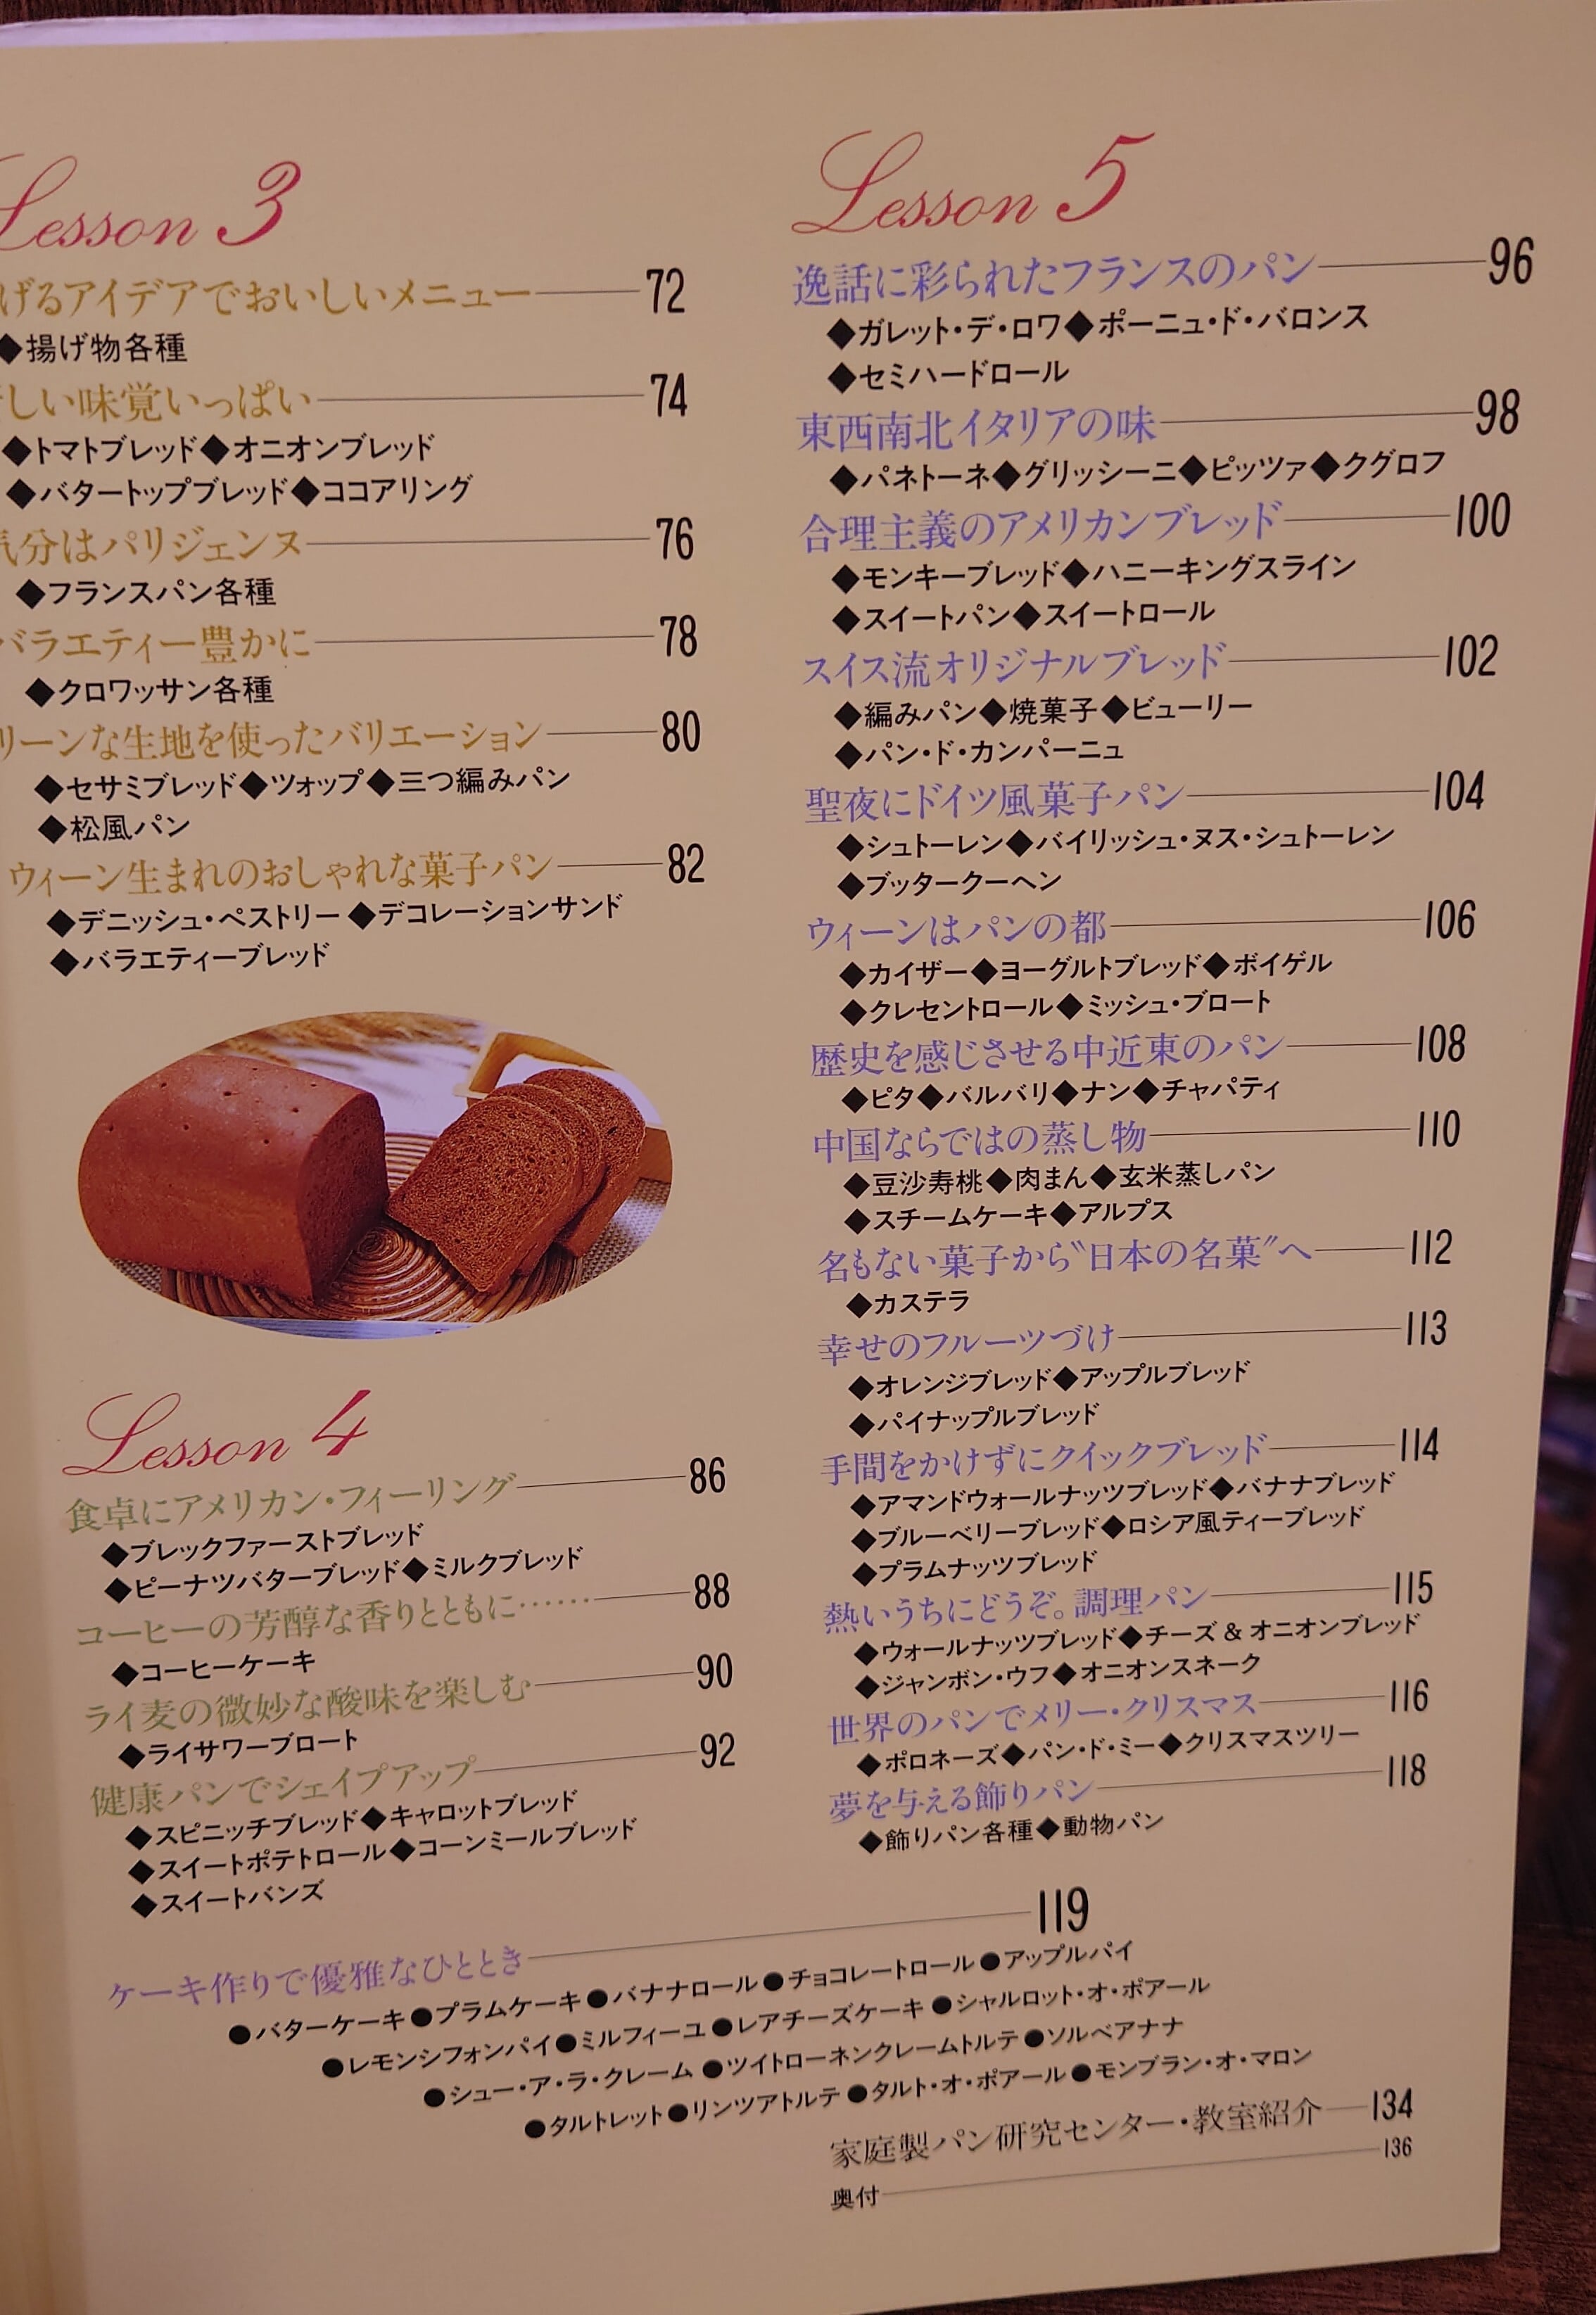 Lesson 3
げるアイデアでおいしいメニュー 72
◆揚げ物各種
しい味覚いっぱい 74
◆トマトブレッド◆オニオンブレッド
◆バタートップブレッド◆ココアリング
気分はパリジェンヌ 76
◆フランスパン各種
バラエティー豊かに 78
◆クロワッサン各種
リーンな生地を使ったバリエーション 80
◆セサミブレッド◆ツォップ◆三つ編みパン
◆松風パン
ウィーン生まれのおしゃれな菓子パン 82
◆デニッシュ・ペストリー◆デコレーションサンド
◆バラエティーブレッド
Lesson 4
食卓にアメリカン・フィーリング 86
◆ブレックファーストブレッド
◆ピーナツバターブレッド◆ミルクブレッド
コーヒーの芳醇な香りとともに…… 88
◆コーヒーケーキ
ライ麦の微妙な酸味を楽しむ 90
◆ライサワーブロート
健康パンでシェイプアップ 92
◆スピニッチブレッド◆キャロットブレッド
◆スイートポテトロール◆コーンミールブレッド
◆スイートバンズ
Lesson 5
逸話に彩られたフランスのパン 96
◆ガレット・デ・ロワ◆ポーニュ・ド・バロンス
◆セミハードロール
東西南北イタリアの味 98
◆パネトーネ◆グリッシーニ◆ピッツァ◆クグロフ
合理主義のアメリカンブレッド 100
◆モンキーブレッド◆ハニーキングスライン
◆スイートパン◆スイートロール
スイス流オリジナルブレッド 102
◆編みパン◆焼菓子◆ビューリー
◆パン・ド・カンパーニュ
聖夜にドイツ風菓子パン 104
◆シュトーレン◆バイリッシュ・ヌス・シュトーレン
◆ブッタークーヘン
ウィーンはパンの都 106
◆カイザー◆ヨーグルトブレッド◆ボイゲル
◆クレセントロール◆ミッシュ・ブロート
歴史を感じさせる中近東のパン 108
◆ピタ◆バルバリ◆ナン◆チャパティ
中国ならではの蒸し物 110
◆豆沙寿桃◆肉まん◆玄米蒸しパン
◆スチームケーキ◆アルプス
名もない菓子から〝日本の名菓〟へ 112
◆カステラ
幸せのフルーツづけ 113
◆オレンジブレッド◆アップルブレッド
◆パイナップルブレッド
手間をかけずにクイックブレッド 114
◆アマンドウォールナッツブレッド◆バナナブレッド
◆ブルーベリーブレッド◆ロシア風ティーブレッド
◆プラムナッツブレッド
熱いうちにどうぞ。調理パン 115
◆ウォールナッツブレッド◆チーズ & オニオンブレッド
◆ジャンボン・ウフ◆オニオンスネーク
世界のパンでメリー・クリスマス 116
◆ポロネーズ◆パン・ド・ミー◆クリスマスツリー
夢を与える飾りパン 118
◆飾りパン各種◆動物パン
ケーキ作りで優雅なひととき 119
●バターケーキ●プラムケーキ●バナナロール●チョコレートロール●アップルパイ
●レモンシフォンパイ●ミルフィーユ●レアチーズケーキ●シャルロット・オ・ポアール
●シュー・ア・ラ・クレーム●ツイトローネンクレームトルテ●ソルベアナナ
●タルトレット●リンツアトルテ●タルト・オ・ポアール●モンブラン・オ・マロン
家庭製パン研究センター・教室紹介 134
奥付 136